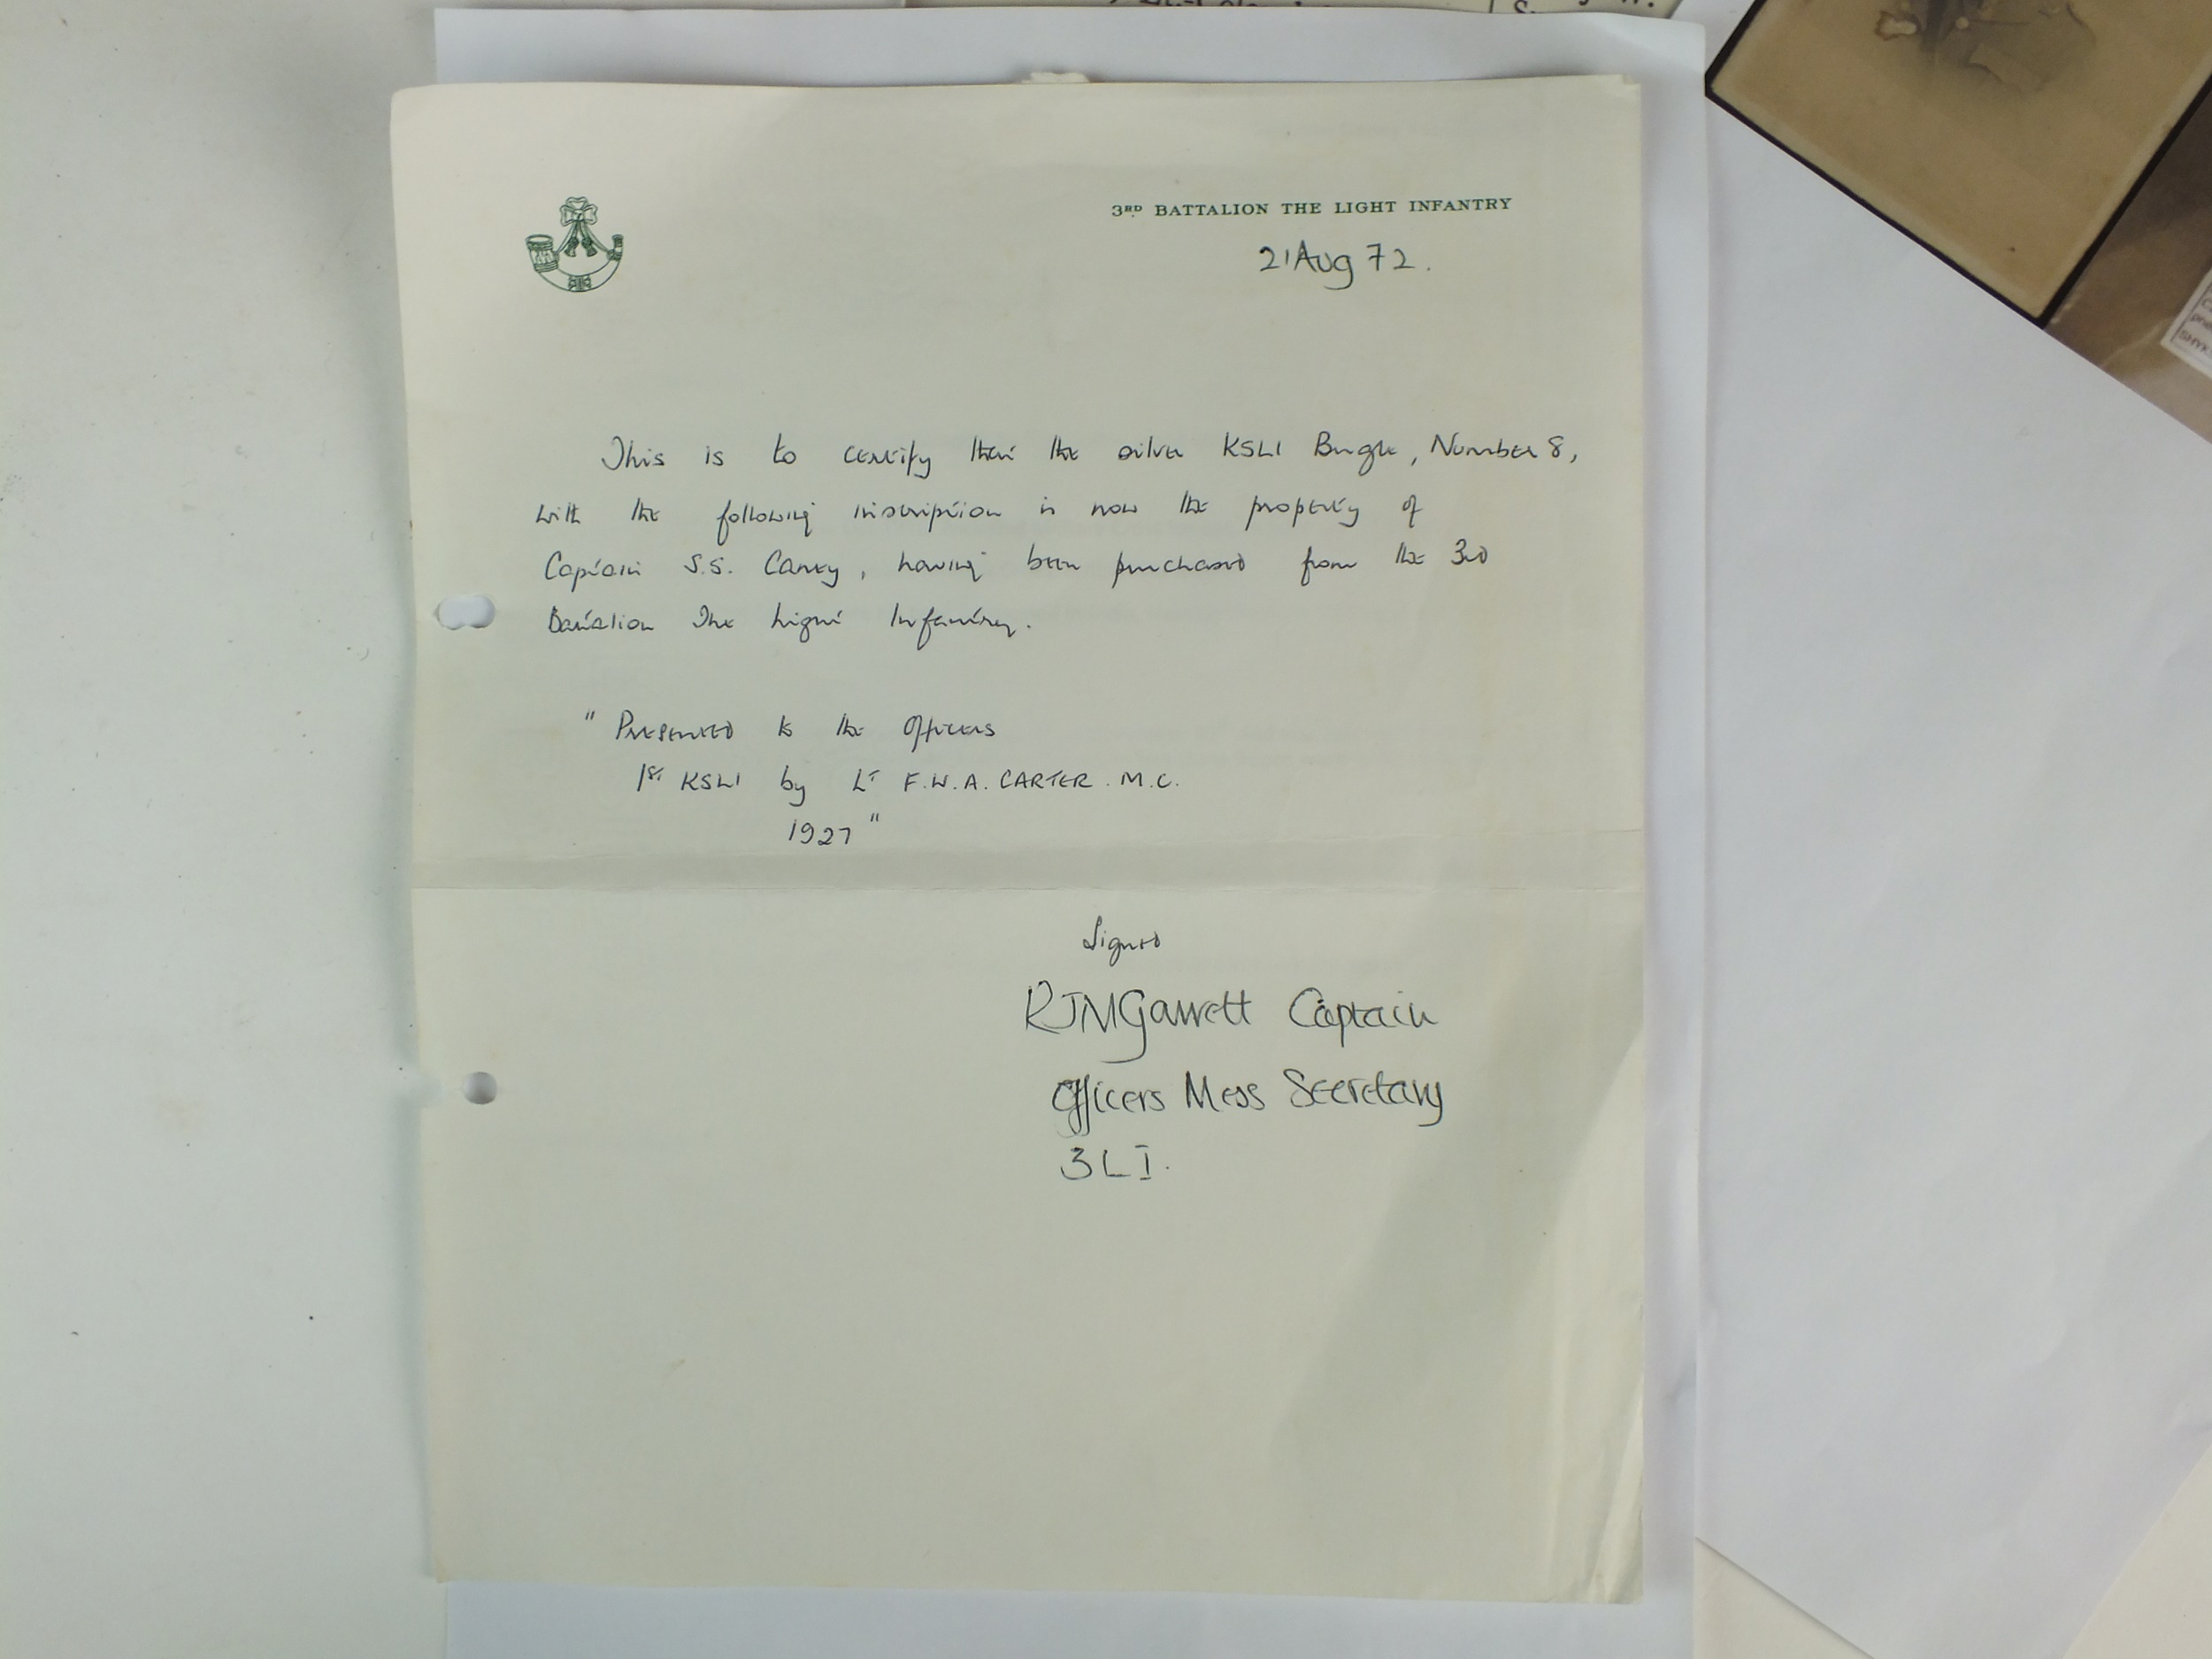 3RD BATTALION THE LIGHT INFANTRY
21 Aug 72.
This is to certify that the silver KSLI Bugle, Number 8,
with the following inscription is now the property of
Captain S.S. Carey, having been purchased from the 3rd
Battalion The Light Infantry.
" Presented to the Officers
1st KSLI by Lt F.W.A. CARTER. M.C.
1927 "
Signed
RJMGarrett Captain
Officers Mess Secretary
3 L I.